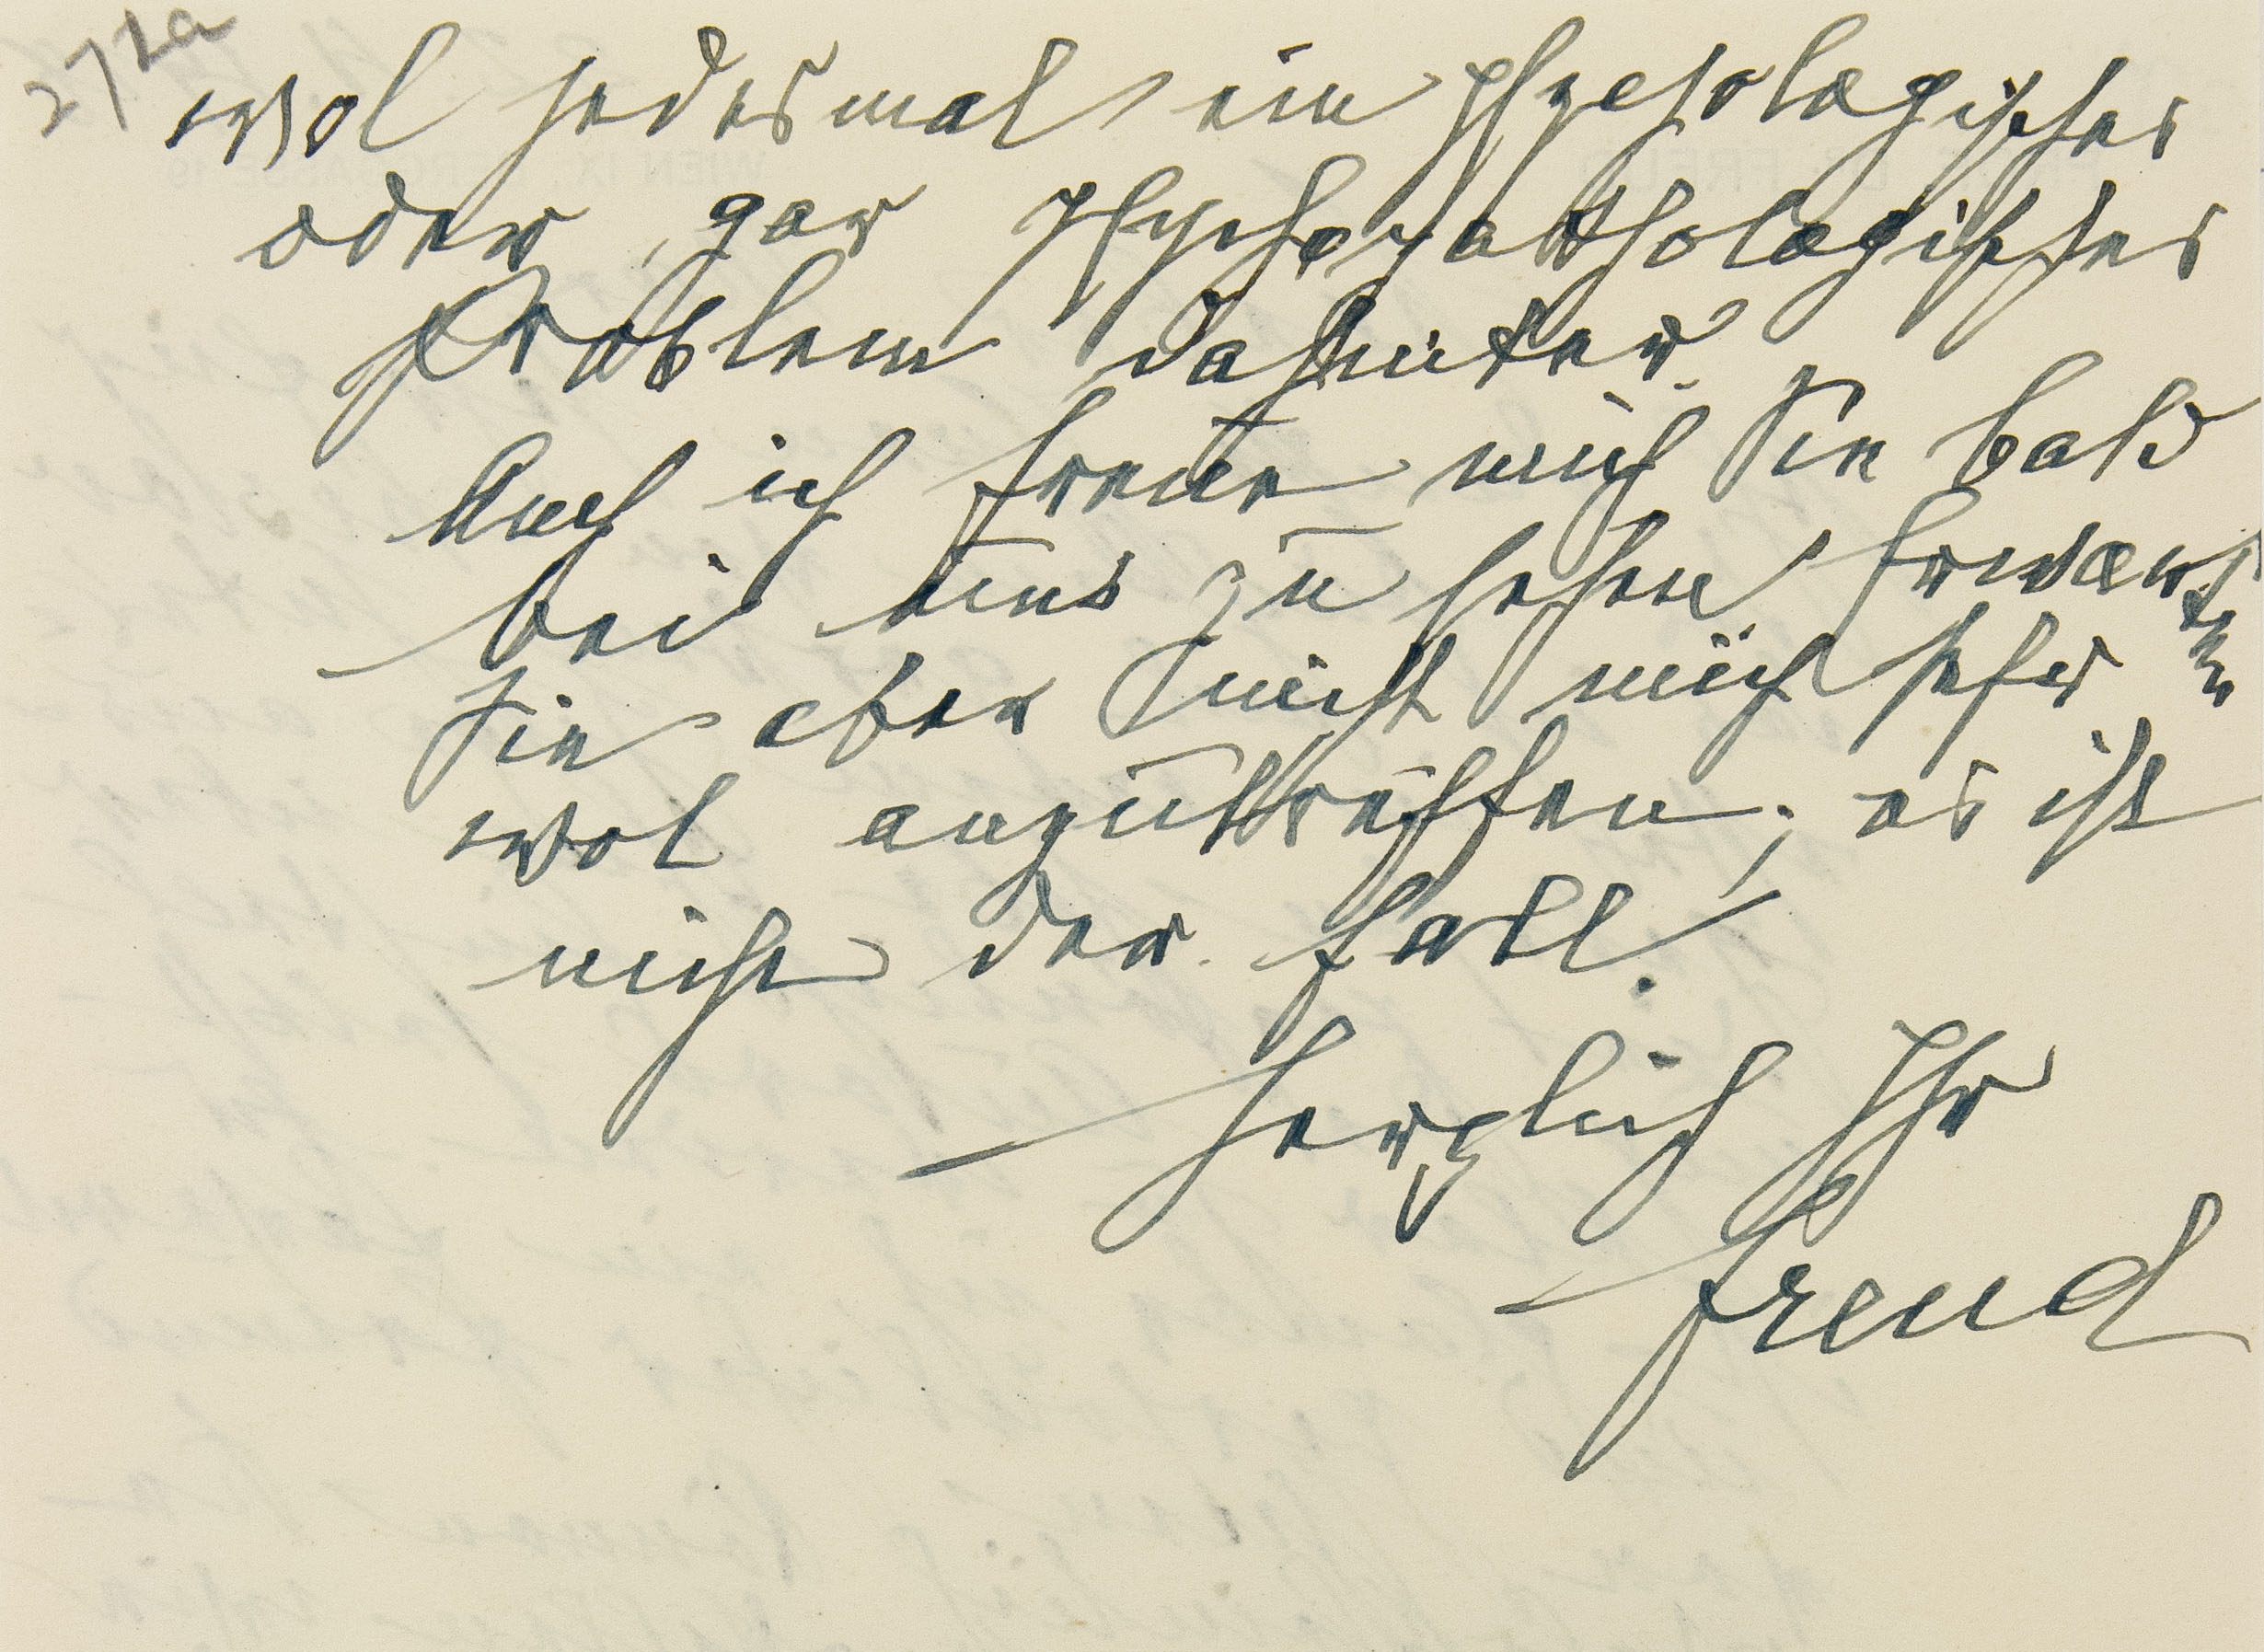 272a
wol jedesmal ein psychologisches
oder gar psychopathologisches
Problem dahinter.
Auch ich freue mich Sie bald
bei uns zu sehen. Erwarten
Sie aber nicht mich sehr
wol anzutreffen; es ist
nicht der Fall.
Herzlich Ihr
Freud